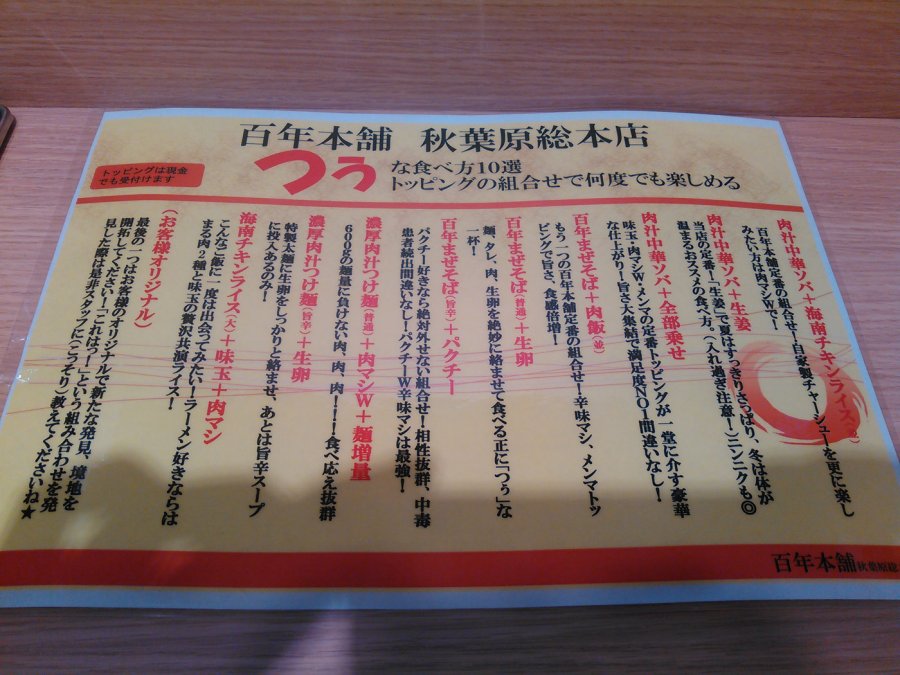 百年本舗 秋葉原総本店
つぅ
な食べ方10選
トッピングの組合せで何度でも楽しめる
トッピングは現金
でも受付けます
肉汁中華ソバ+海南チキンライス
百年本舗定番の組合せ!自家製チャーシューを更に楽し
みたい方は肉マシWで!
肉汁中華ソバ+生姜
当店の定番!「生姜」で夏はすっきりさっぱり、冬は体が
温まるおススメの食べ方。(入れ過ぎ注意!)ニンニクも◎
肉汁中華ソバ+全部乗せ
味玉・肉マシW・メンマの定番トッピングが一堂に介す豪華
な仕上がり!旨さ大集結で満足度NO1間違いなし!
百年まぜそば+肉飯(並)
もう一つの百年本舗定番の組合せ!辛味マシ、メンマトッ
ピングで旨さ、食感倍増!
百年まぜそば(普通)+生卵
麺、タレ、肉、生卵を絶妙に絡ませて食べる正に「つぅ」な
一杯!
百年まぜそば(旨辛)+パクチー
パクチー好きなら絶対外せない組合せ!相性抜群、中毒
患者続出間違いなし!パクチーW辛味マシは最強!
濃厚肉汁つけ麺(普通)+肉マシW+麺増量
600gの麺量に負けない肉、肉、肉!!!食べ応え抜群
濃厚肉汁つけ麺(旨辛)+生卵
特製太麺に生卵をしっかりと絡ませ、あとは旨辛スープ
に投入あるのみ!
海南チキンライス(大)+味玉+肉マシ
こんなご飯に一度は出会ってみたい!ラーメン好きならは
まる肉2種と味玉の贅沢共演ライス!
(お客様オリジナル)
最後の一つはお客様のオリジナルで新たな発見、境地を
開拓してください!「これはっ!」という組み合わせを発
見した際は是非スタッフに(こっそり)教えてくださいね★
百年本舗秋葉原総